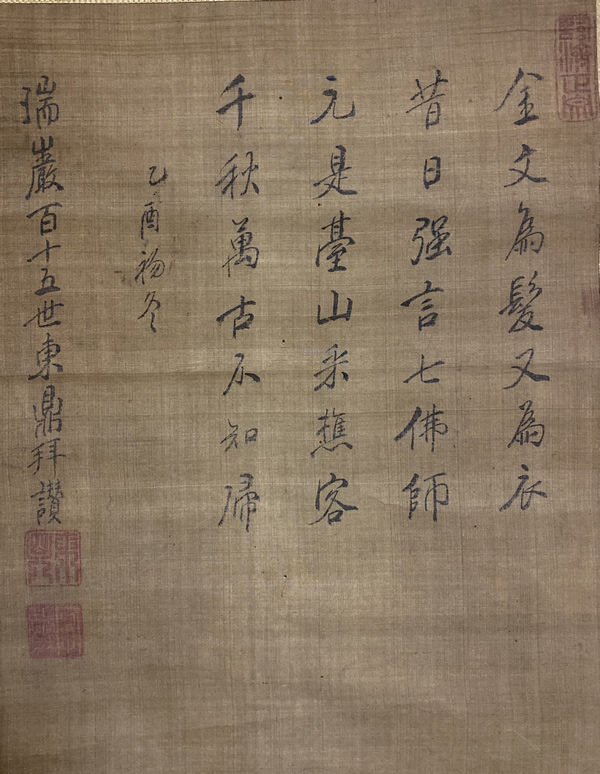 金文為髮又為衣
昔日强言七佛師
元是臺山采樵客
千秋萬古不知歸
乙酉初冬
瑞巖百十五世東鼎拜讃